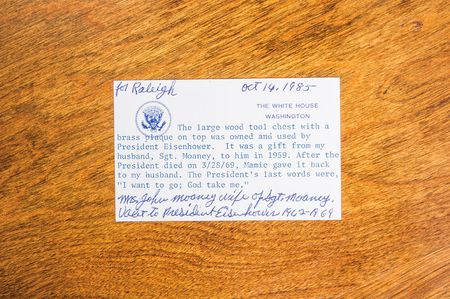 for Raleigh Oct 14, 1985
THE WHITE HOUSE
WASHINGTON
The large wood tool chest with a
brass plaque on top was owned and used by
President Eisenhower. It was a gift from my
husband, Sgt. Moaney, to him in 1959. After the
President died on 3/28/69, Mamie gave it back
to my husband. The President's last words were,
"I want to go; God take me."
Mrs John Moaney wife of Sgt. Moaney.
Valet to President Eisenhower 1942-1969